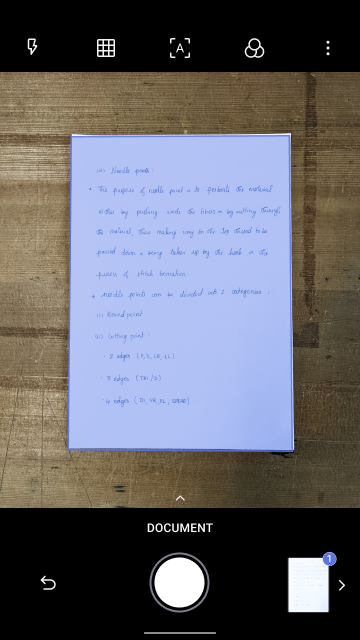 A
(ii) Needle points
• The purpose of needle point is to perforate the material
either by pushing aside the fibres or by cutting through
the material, thus making way to the top thread to be
passed down & being taken up by the hook in the
process of stitch formation.
• Needle points can be divided into 2 categories :
(i) Round point
(ii) Cutting point
· 2 edges (P, S, LR, LL)
· 3 edges (TRI/D)
· 4 edges
DOCUMENT
1